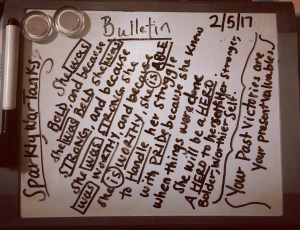 Bulletin
2/5/17
Sparkly War Tanks
BOLD she WAS
and because
she was BOLD she WAS
STRONG, and because
she WAS STRONG she
WAS WORTHY, and because
she is WORTHY she is ABLE
to Handle her struggle
with PRIDE because she knows
when things were done
she will be a HERO.
A HERO to her stronger,
Bolder, Worthier Self.
Your Past Victories are
your present